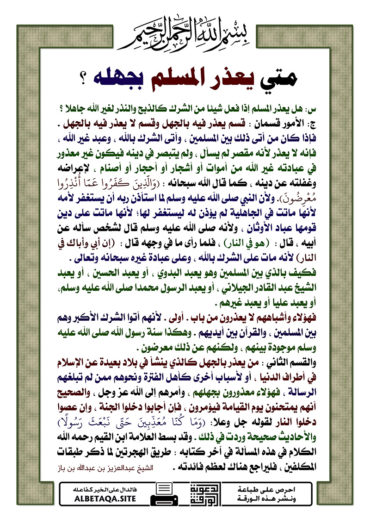 بسم الله الرحمن الرحيم
متي يعذر المسلم بجهله ؟
س: هل يعذر المسلم إذا فعل شيئا من الشرك كالذبح والنذر لغير الله جاهلا ؟
ج: الأمور قسمان : قسم يعذر فيه بالجهل وقسم لا يعذر فيه بالجهل .
فإذا كان من أتى ذلك بين المسلمين ، وأتى الشرك بالله ، وعبد غير الله ،
فإنه لا يعذر لأنه مقصر لم يسأل ، ولم يتبصر في دينه فيكون غير معذور
في عبادته غير الله من أموات أو أشجار أو أحجار أو أصنام ، لإعراضه
وغفلته عن دينه ، كما قال الله سبحانه : (وَالَّذِينَ كَفَرُوا عَمَّا أُنْذِرُوا
مُعْرِضُونَ)، ولأن النبي صلى الله عليه وسلم لما استأذن ربه أن يستغفر لأمه
لأنها ماتت في الجاهلية لم يؤذن له ليستغفر لها؛ لأنها ماتت على دين
قومها عباد الأوثان ، ولأنه صلى الله عليه وسلم قال لشخص سأله عن
أبيه ، قال : (هو في النار) ، فلما رأى ما في وجهه قال : (إن أبي وأباك في
النار) لأنه مات على الشرك بالله ، وعلى عبادة غيره سبحانه وتعالى .
فكيف بالذي بين المسلمين وهو يعبد البدوي ، أو يعبد الحسين ، أو يعبد
الشيخ عبد القادر الجيلاني ، أو يعبد الرسول محمدا صلى الله عليه وسلم،
أو يعبد عليا أو يعبد غيرهم .
فهؤلاء وأشباههم لا يعذرون من باب . أولى . لأنهم أتوا الشرك الأكبر وهم
بين المسلمين ، والقرآن بين أيديهم . وهكذا سنة رسول الله صلى الله عليه
وسلم موجودة بينهم ، ولكنهم عن ذلك معرضون .
والقسم الثاني : من يعذر بالجهل كالذي ينشأ في بلاد بعيدة عن الإسلام
في أطراف الدنيا ، أو لأسباب أخرى كأهل الفترة ونحوهم ممن لم تبلغهم
الرسالة ، فهؤلاء معذورون بجهلهم ، وأمرهم إلى الله عز وجل ، والصحيح
أنهم يمتحنون يوم القيامة فيؤمرون ، فإن أجابوا دخلوا الجنة ، وإن عصوا
دخلوا النار لقوله جل وعلا: (وَمَا كُنَّا مُعَذِّبِينَ حَتَّى نَبْعَثَ رَسُولًا)
والأحاديث صحيحة وردت في ذلك . وقد بسط العلامة ابن القيم رحمه الله
الكلام في هذه المسألة في آخر كتابه : طريق الهجرتين لما ذكر طبقات
المكلفين ، فليراجع هناك لعظم فائدته . الشيخ عبدالعزيز بن عبدالله بن باز
احرص على طباعة
ونشر هذه الورقة
الدعوية
الورقة
فالدال على الخير كفاعله
ALBETAQA.SITE